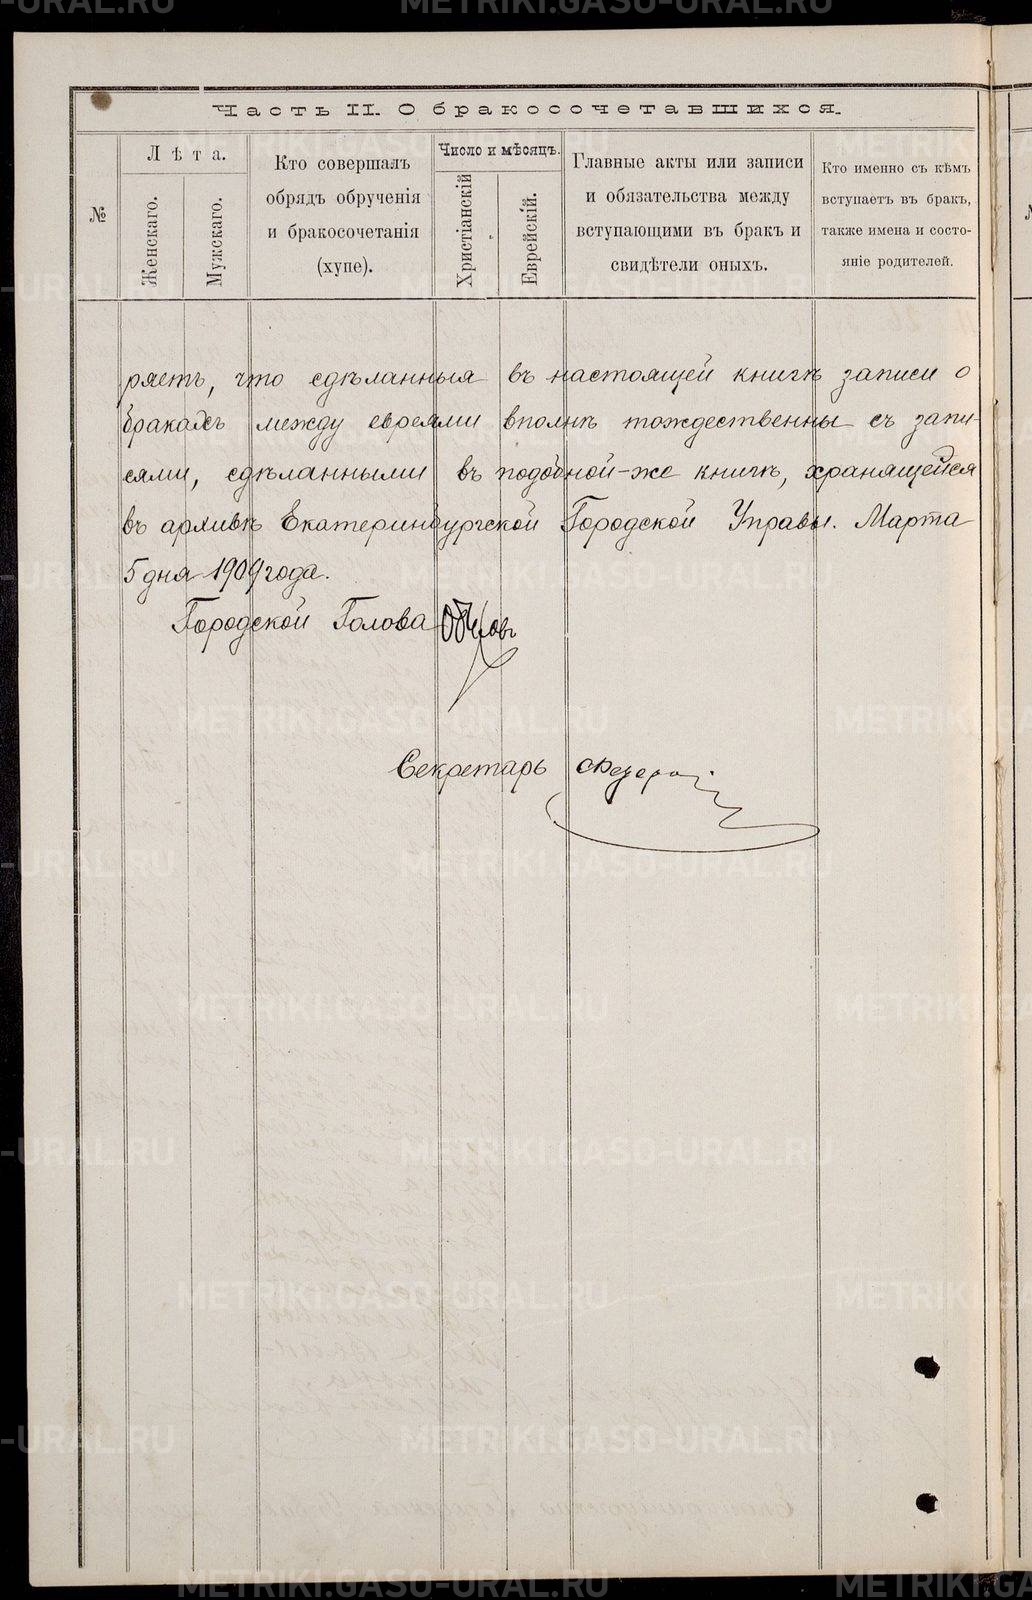 Часть II. О бракосочетавшихся.
№
Лѣта.
Женскаго.
Мужскаго.
Кто совершалъ
обрядъ обрученія
и бракосочетанія
(хупе).
Число и мѣсяцъ.
Христіанскій
Еврейскій.
Главные акты или записи
и обязательства между
вступающими въ бракъ и
свидѣтели оныхъ.
Кто именно съ кѣмъ
вступаетъ въ бракъ,
также имена и состо-
яніе родителей.
ряетъ, что сдѣланныя въ настоящей книгѣ записи о
бракахъ между евреями вполнѣ тождественны съ запи-
сями, сдѣланными въ подобной-же книгѣ, хранящейся
въ архивѣ Екатеринбургской Городской Управы. Марта
5 дня 1909 года.
Городской Голова
Секретарь
METRIKI.GASO-URAL.RU